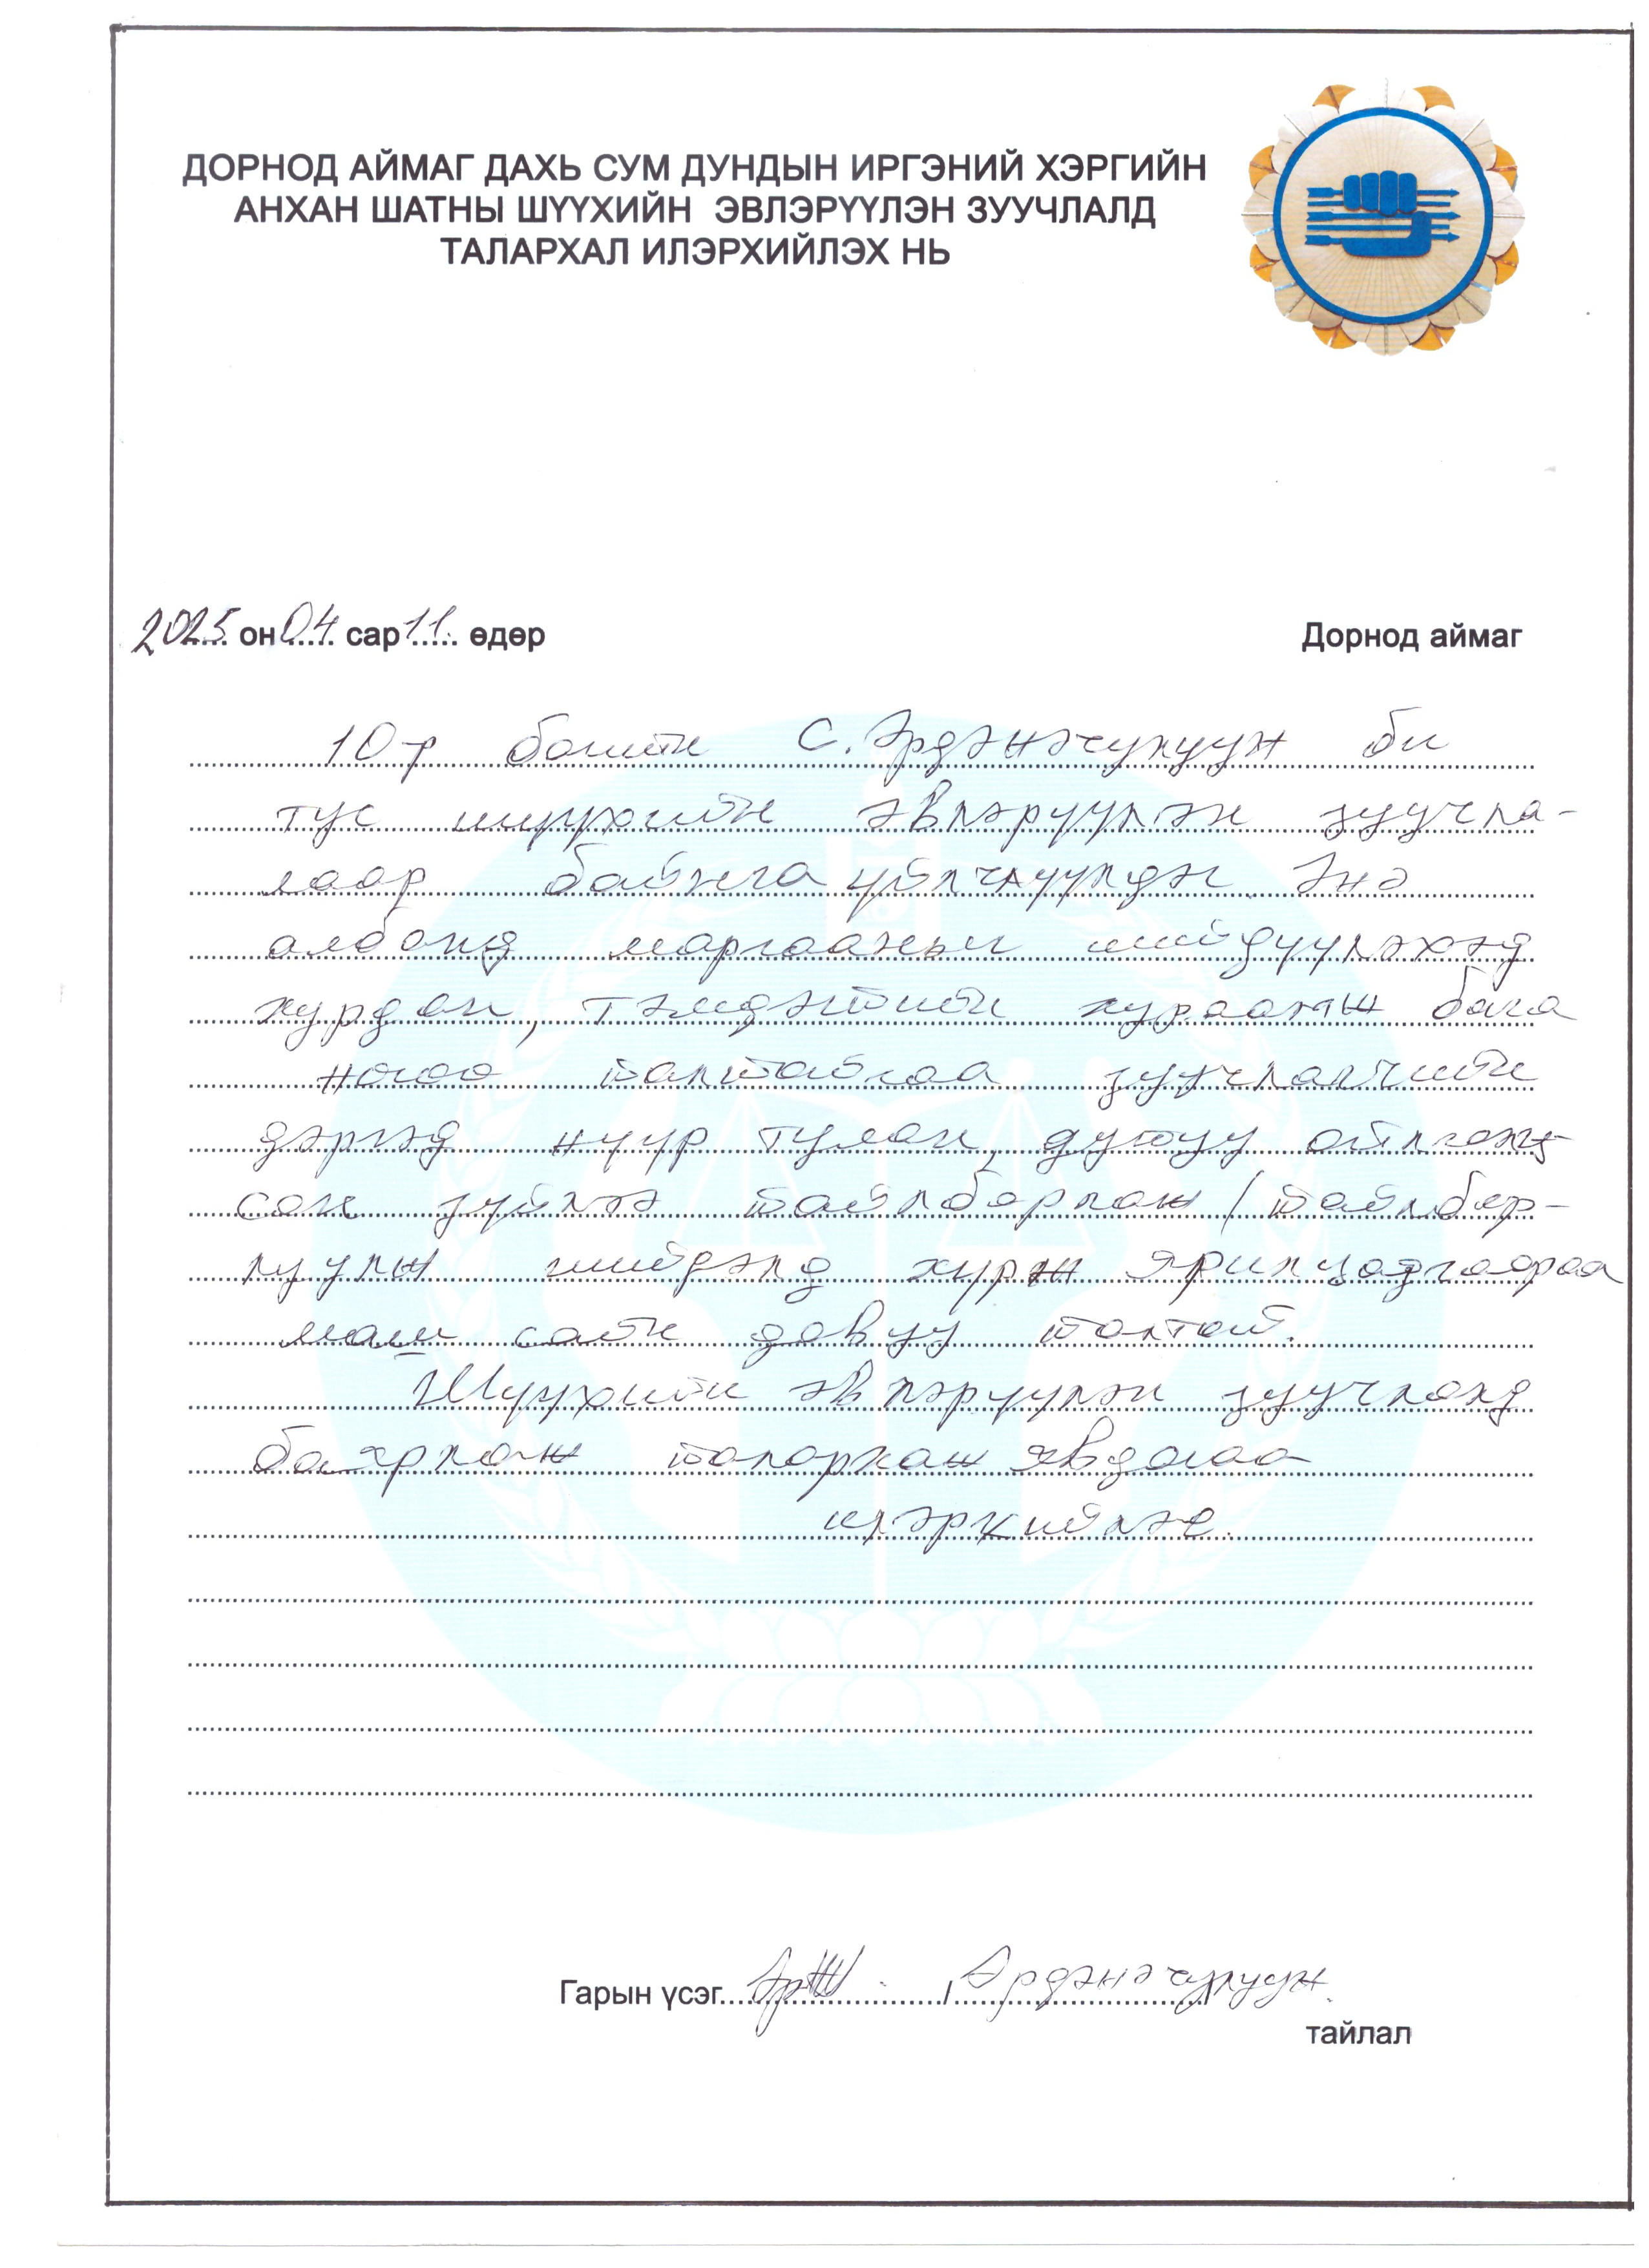 ДОРНОД АЙМАГ ДАХЬ СУМ ДУНДЫН ИРГЭНИЙ ХЭРГИЙН
АНХАН ШАТНЫ ШҮҮХИЙН ЭВЛЭРҮҮЛЭН ЗУУЧЛАЛД
ТАЛАРХАЛ ИЛЭРХИЙЛЭХ НЬ
2025 он 04 сар 11 өдөр Дорнод аймаг
10-р багийн С. Эрдэнэчулуун би
тус шүүхийн эвлэрүүлэн зуучла-
лаар байнга үйлчлүүлдэг Энэ
албанд маргааныг шийдүүлэхэд
хурдан, тэмдэгтийн хураамж бага
нөгөө талтайгаа зуучлагчийн
дэргэд нүүр тулан, дутуу ойлгог-
сон зүйлээ тайлбарлаж / тайлбар-
луулж шийдэлд хүрж ярилцадгаараа
маш сайн давуу талтай.
Шүүхийн эвлэрүүлэн зуучлалд
баярлаж талархаж явдагаа
илэрхийлье.
Гарын үсэг / Эрдэнэчулуун /
тайлал